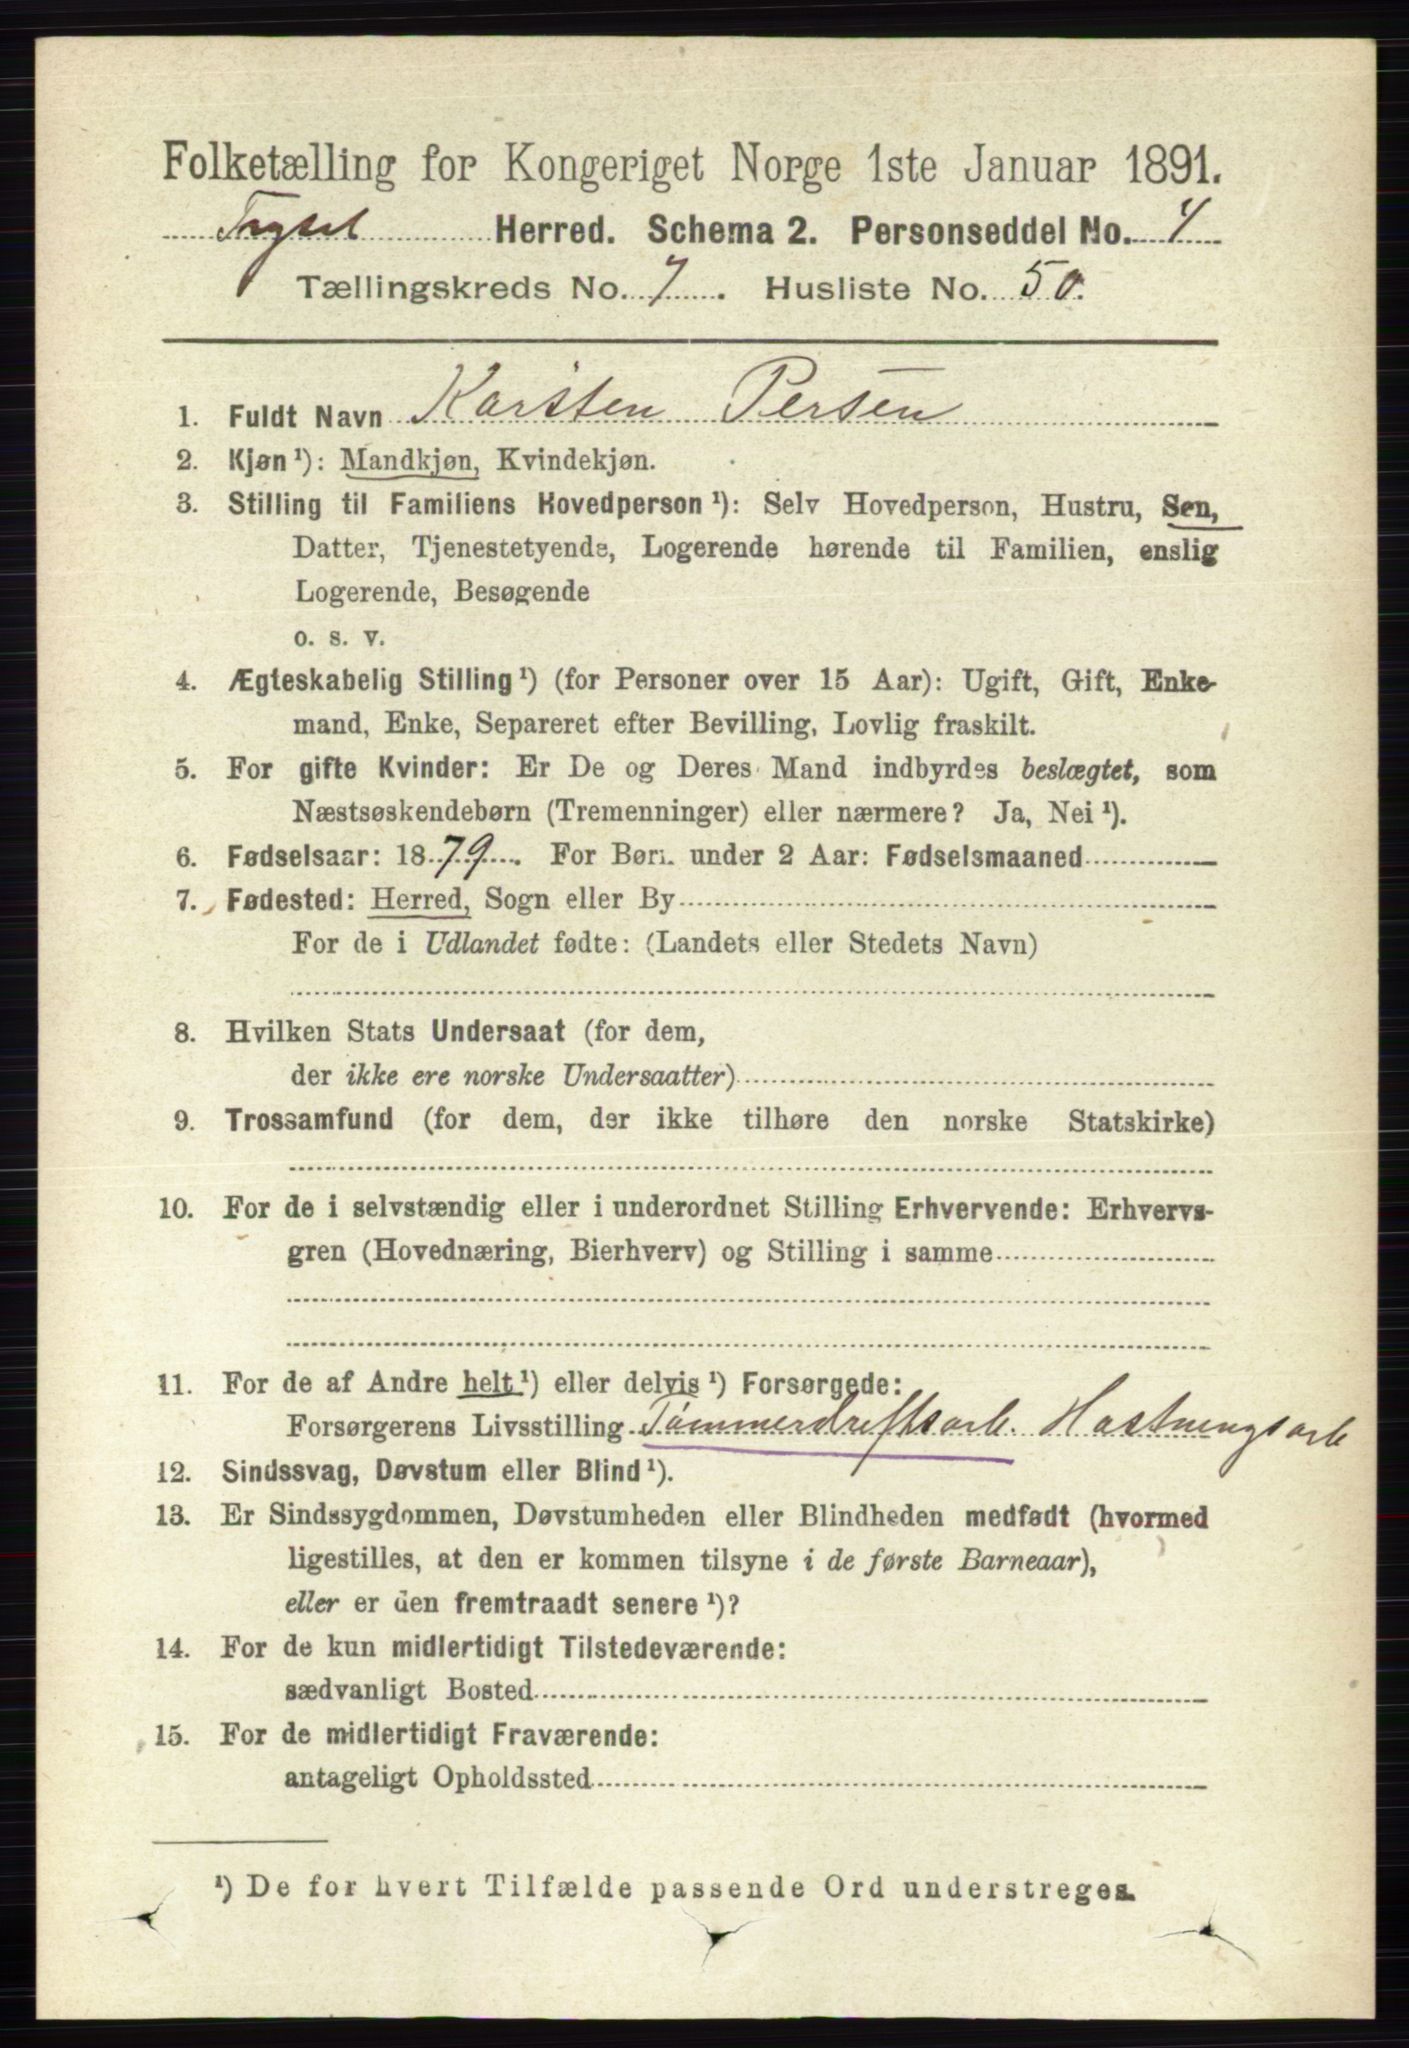 Folketælling for Kongeriget Norge 1ste Januar 1891.
Trysil Herred. Schema 2. Personseddel No. 4
Tællingskreds No. 7. Husliste No. 50.
1. Fuldt Navn Karsten Persen
2. Kjøn ¹): Mandkjøn, Kvindekjøn.
3. Stilling til Familiens Hovedperson ¹): Selv Hovedperson, Hustru, Søn,
Datter, Tjenestetyende, Logerende hørende til Familien, enslig
Logerende, Besøgende
o. s. v.
4. Ægteskabelig Stilling ¹) (for Personer over 15 Aar): Ugift, Gift, Enke-
mand, Enke, Separeret efter Bevilling, Lovlig fraskilt.
5. For gifte Kvinder: Er De og Deres Mand indbyrdes beslægtet, som
Næstsøskendebørn (Tremenninger) eller nærmere? Ja, Nei ¹).
6. Fødselsaar: 1879. For Børn under 2 Aar: Fødselsmaaned
7. Fødested: Herred, Sogn eller By
For de i Udlandet fødte: (Landets eller Stedets Navn)
8. Hvilken Stats Undersaat (for dem,
der ikke ere norske Undersaatter)
9. Trossamfund (for dem, der ikke tilhøre den norske Statskirke)
10. For de i selvstændig eller i underordnet Stilling Erhvervende: Erhvervs-
gren (Hovednæring, Bierhverv) og Stilling i samme
11. For de af Andre helt ¹) eller delvis ¹) Forsørgede:
Forsørgerens Livsstilling Tømmerdriftsarb. Hostningsarb
12. Sindssvag, Døvstum eller Blind ¹).
13. Er Sindssygdommen, Døvstumheden eller Blindheden medfødt (hvormed
ligestilles, at den er kommen tilsyne i de første Barneaar),
eller er den fremtraadt senere ¹)?
14. For de kun midlertidigt Tilstedeværende:
sædvanligt Bosted
15. For de midlertidigt Fraværende:
antageligt Opholdssted
¹) De for hvert Tilfælde passende Ord understreges.